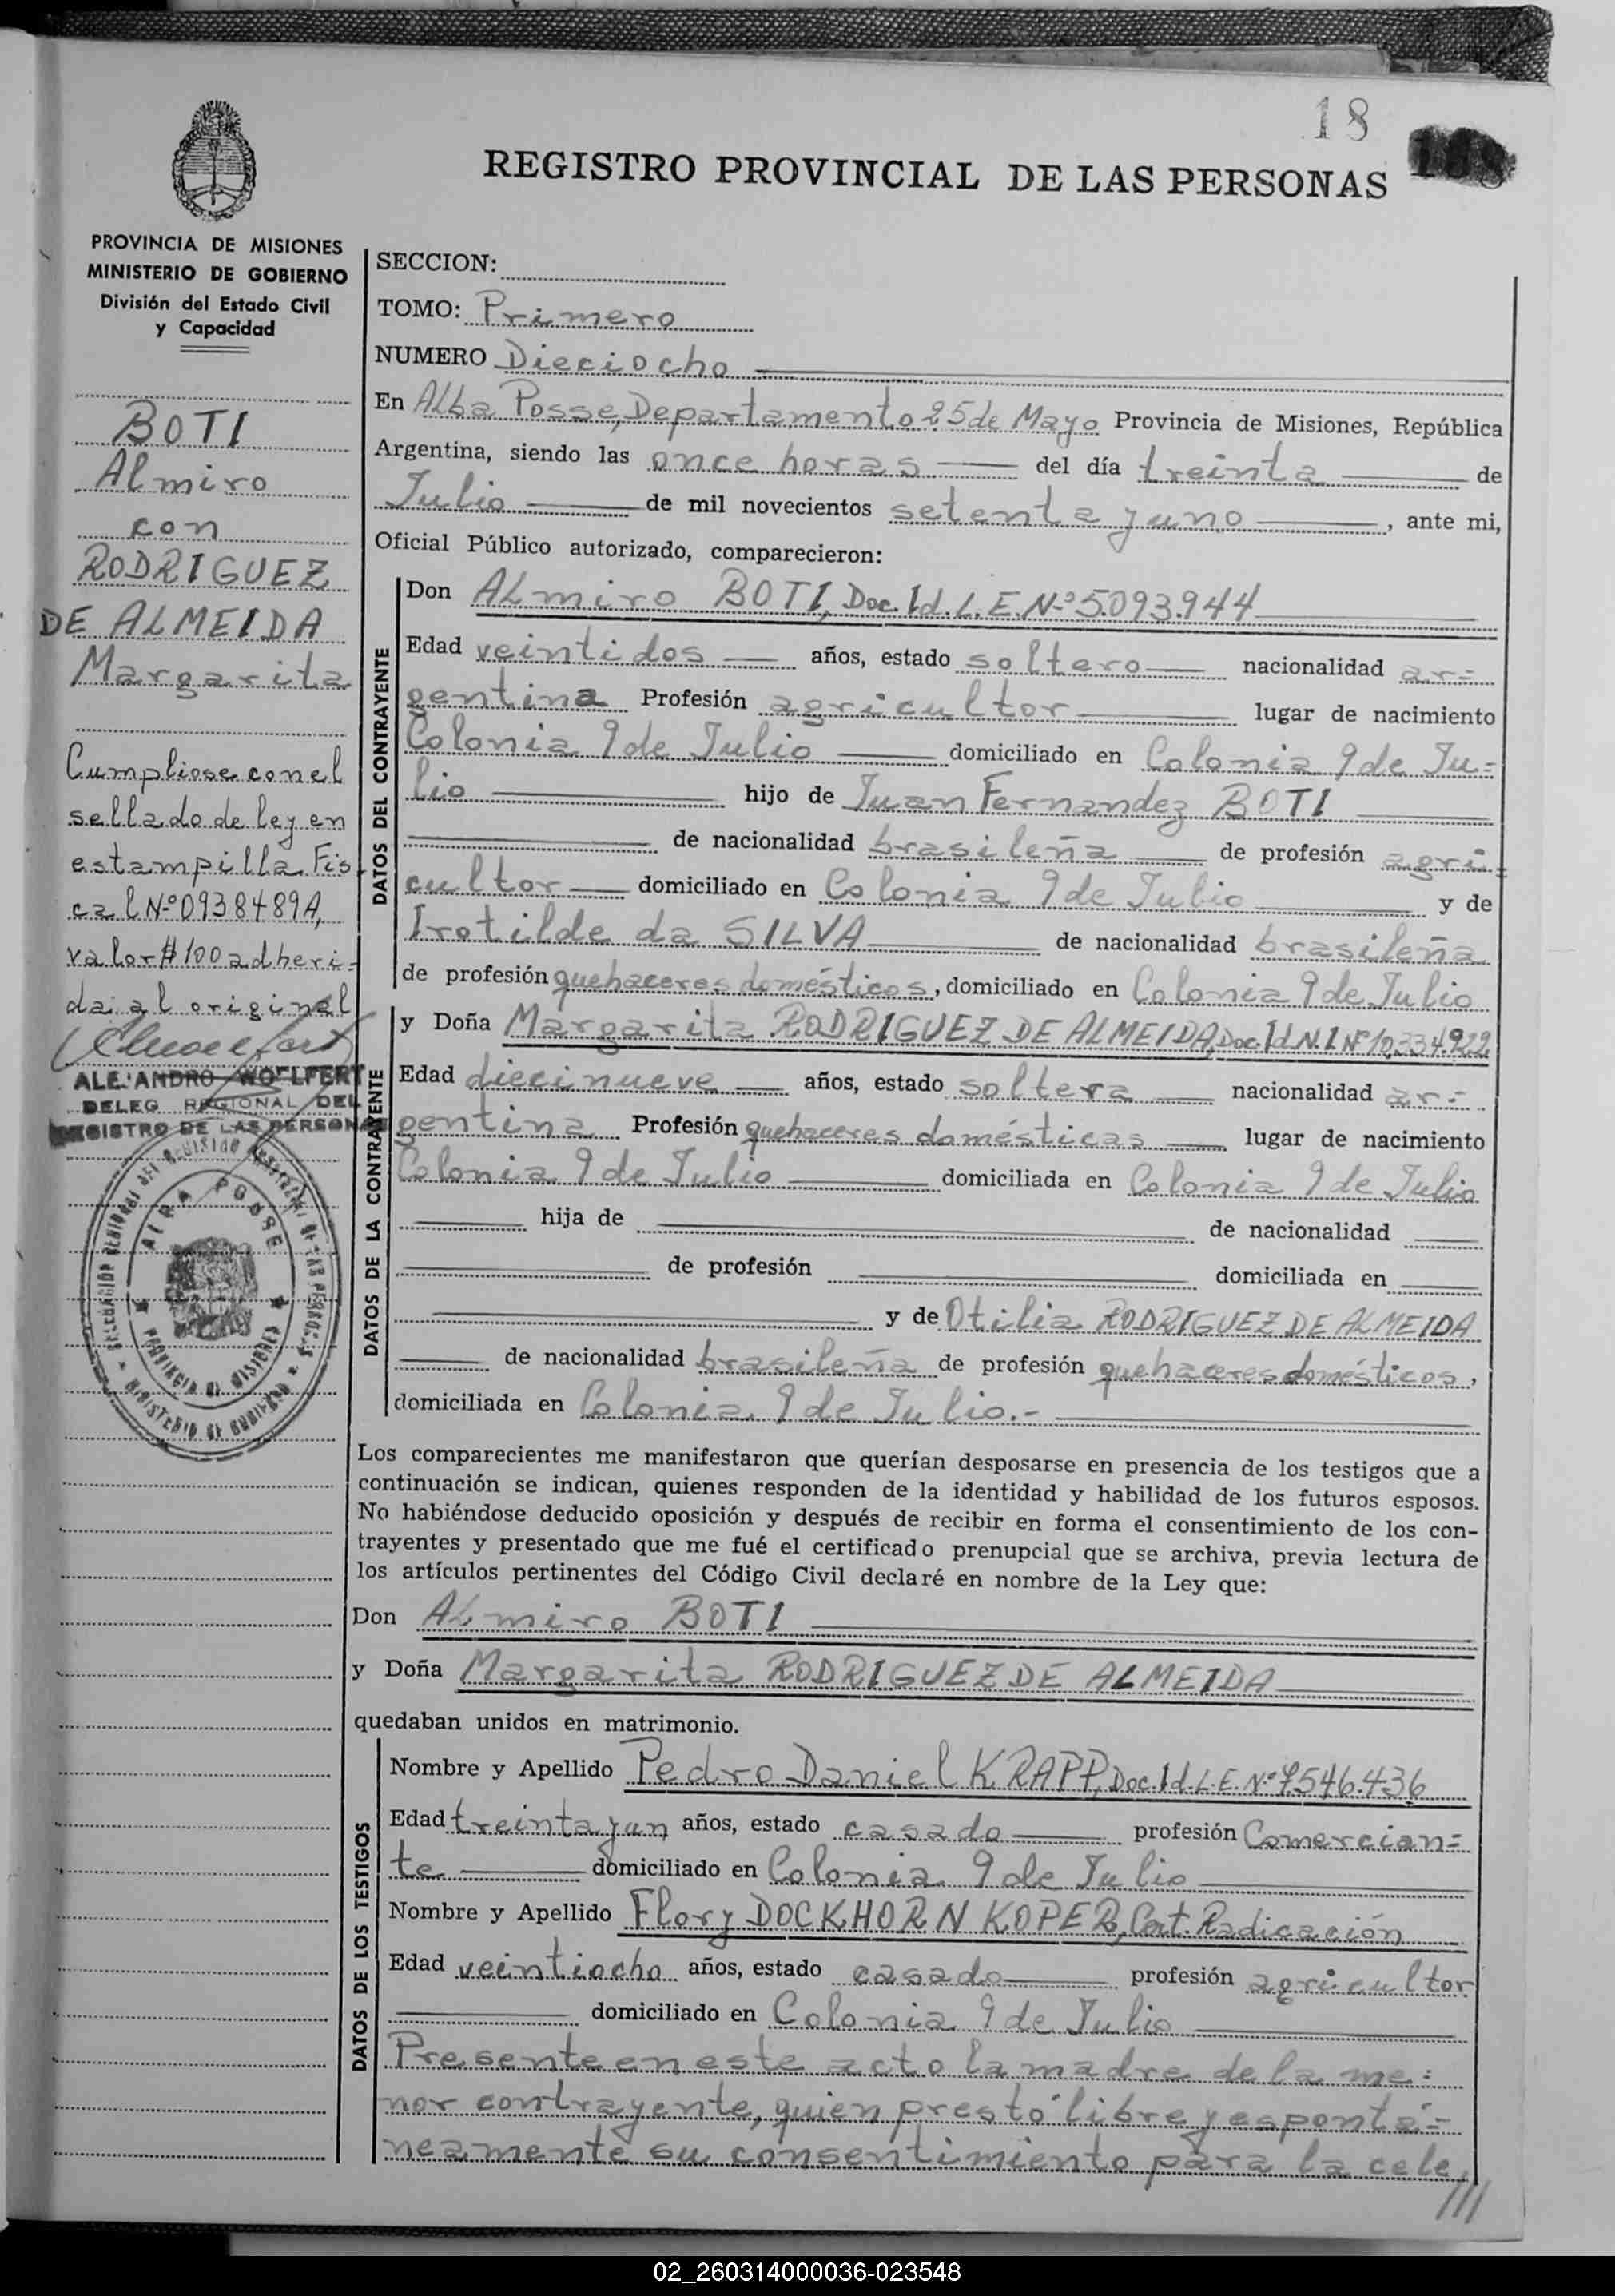 18
REGISTRO PROVINCIAL DE LAS PERSONAS
PROVINCIA DE MISIONES
MINISTERIO DE GOBIERNO
División del Estado Civil
y Capacidad
BOTI
Almiro
con
RODRIGUEZ
DE ALMEIDA
Margarita
Cumpliose con el
sellado de ley en
estampilla Fis
cal Nº 0938489A,
valor $ 100 adheri=
da al original
ALEJANDRO WOELFERT
DELEG REGIONAL DEL
REGISTRO DE LAS PERSONAS
ALBA POSSE
PROVINCIA DE MISIONES
MINISTERIO DE GOBIERNO
SECCION:
TOMO: Primero
NUMERO Dieciocho
En Alba Posse, Departamento 25 de Mayo Provincia de Misiones, República
Argentina, siendo las once horas del día treinta de
Julio de mil novecientos setenta y uno, ante mi,
Oficial Público autorizado, comparecieron:
DATOS DEL CONTRAYENTE
Don ALmiro BOTI, Doc. Id. L.E. Nº 5.093.944
Edad veintidos años, estado soltero nacionalidad ar=
gentina Profesión agricultor lugar de nacimiento
Colonia 9 de Julio domiciliado en Colonia 9 de Ju=
lio hijo de Juan Fernandez BOTI
de nacionalidad brasileña de profesión agri=
cultor domiciliado en Colonia 9 de Julio y de
Irotilde da SILVA de nacionalidad brasileña
de profesión quehaceres domésticos, domiciliado en Colonia 9 de Julio
DATOS DE LA CONTRAYENTE
y Doña Margarita RODRIGUEZ DE ALMEIDA, Doc. Id. N.I. Nº 10.334.922
Edad diecinueve años, estado soltera nacionalidad ar=
gentina Profesión quehaceres domésticas lugar de nacimiento
Colonia 9 de Julio domiciliada en Colonia 9 de Julio
hija de de nacionalidad
de profesión domiciliada en
y de Otilia RODRIGUEZ DE ALMEIDA
de nacionalidad brasileña de profesión quehaceres domésticos,
domiciliada en Colonia 9 de Julio.-
Los comparecientes me manifestaron que querían desposarse en presencia de los testigos que a
continuación se indican, quienes responden de la identidad y habilidad de los futuros esposos.
No habiéndose deducido oposición y después de recibir en forma el consentimiento de los con-
trayentes y presentado que me fué el certificado prenupcial que se archiva, previa lectura de
los artículos pertinentes del Código Civil declaré en nombre de la Ley que:
Don ALmiro BOTI
y Doña Margarita RODRIGUEZ DE ALMEIDA
quedaban unidos en matrimonio.
DATOS DE LOS TESTIGOS
Nombre y Apellido Pedro Daniel KRAPP, Doc. Id. L.E. Nº 7.546.436
Edad treinta y un años, estado casado profesión Comercian=
te domiciliado en Colonia 9 de Julio
Nombre y Apellido Flory DOCKHORN KOPER, Cert. Radicación
Edad veintiocho años, estado casado profesión agricultor
domiciliado en Colonia 9 de Julio
Presente en este acto la madre de la me=
nor contrayente, quien prestó libre y espontá=
neamente su consentimiento para la cele
///
02_260314000036-023548